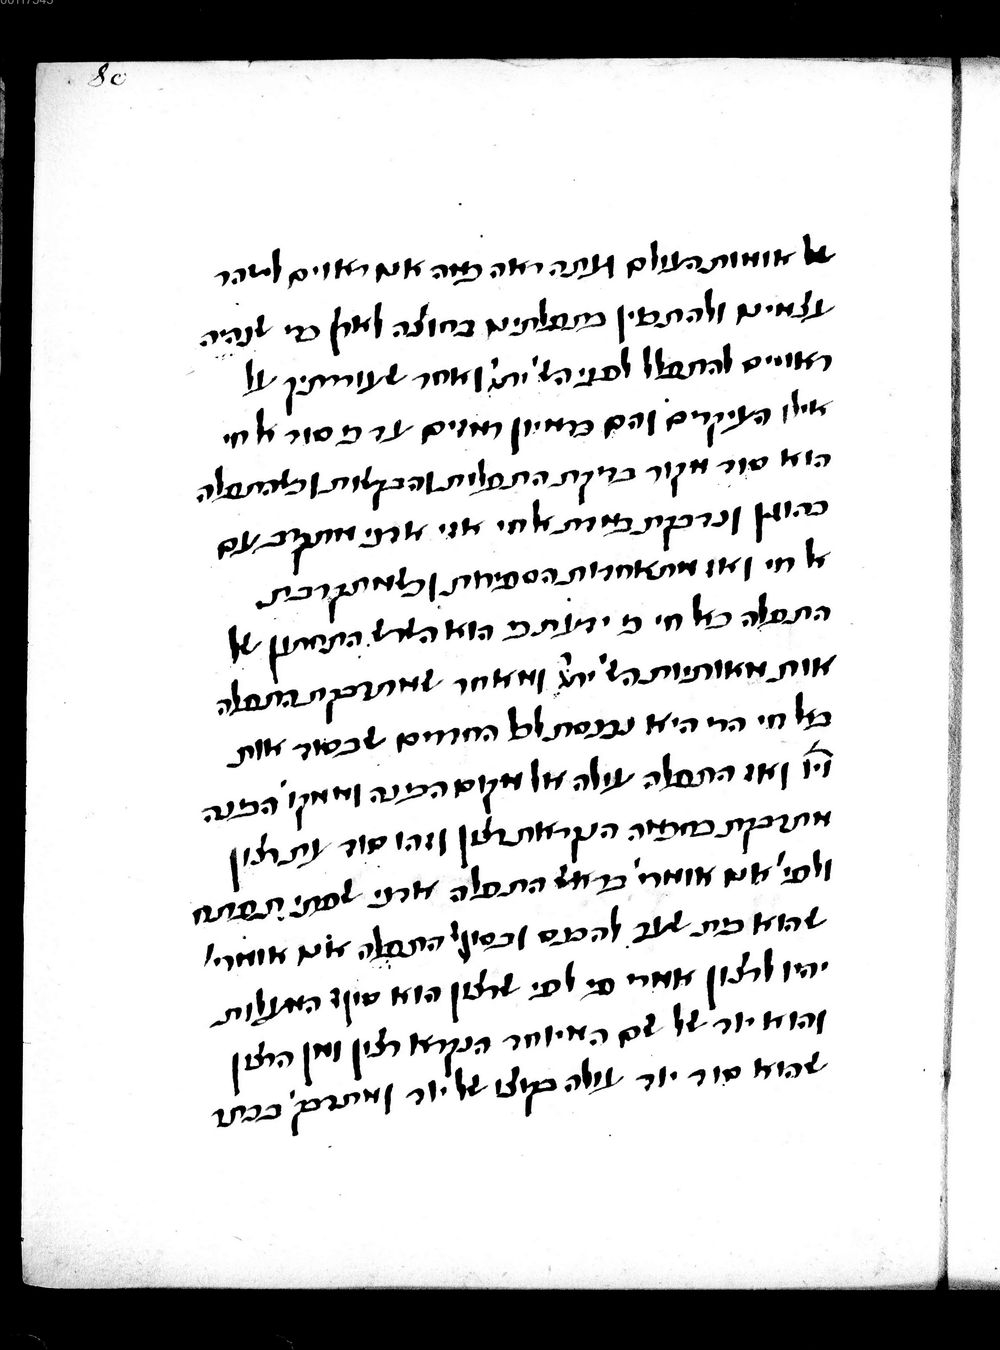 8c
של אומות העולם ועתה ראה כמה אנו ראוים לטהר
עצמינו ולהתנקות בתפלתינו בחוצה לארץ כדי שנהיה
ראויים להתפלל לפני הש׳ ית׳ ואחר שעוררתיך על
אילו העיקרים והם כראיון רמזים ער כי סוד אל חי
הוא סוד מקור בריכת התפלות והבקשות וכשהתפלה
כהוגן ונדבקת במדת אל חי אזי אדני מתקרב עם
אל חי ואז מתאחדות הספירות וכשמתקרבת
התפלה באל חי כי ידעת כי הוא השלש התחתון של
אות מאותיות הש׳ ית׳ ומאחר שמתדבקת התפלה
באל חי הרי היא נכנסת לכל החדרים שבסוד אות
ויו ואז התפלה עולה אל מקום הבינה וממקו׳ הבינה
מתדבקת בחכמה הנקראת רצון וזהו סוד עת רצון
ולפי׳ אנו אומרי׳ בראש התפלה אדני שפתי תפתח
שהוא בית שער להכנס ובסוף התפלה אנו אומרי׳
יהיו לרצון אמרי פי לפי שרצון הוא סוף המעלות
והוא יוד של שם המיוחד הנקרא רצון ומן הרצון
שהוא סוד יוד עולה בקוצו של יוד ומתדבק׳ בכתר